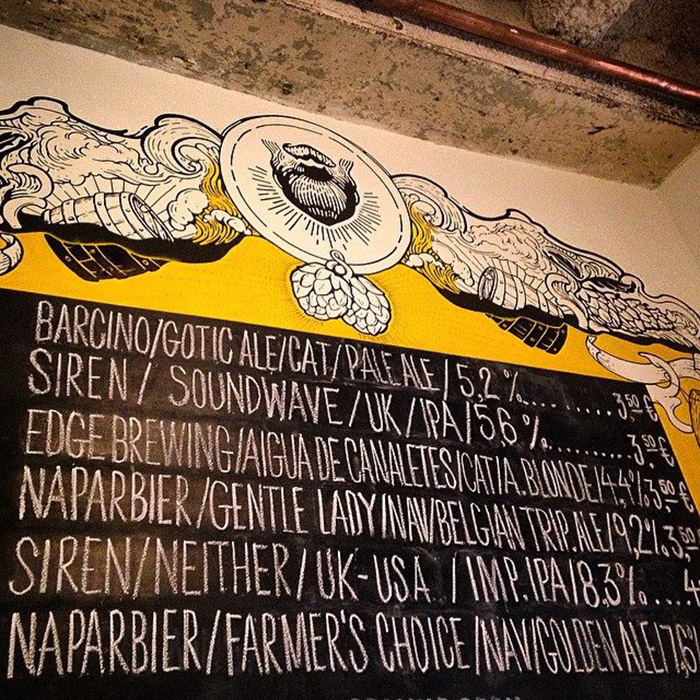 BARCINO/GOTIC ALE/CAT/PALE ALE/5,2%.........3,50€
SIREN/ SOUNDWAVE/UK/IPA/5,6%.........3,50€
EDGE BREWING/AIGUA DE CANALETES/CAT/A. BLONDE/4,4%3,50€
NAPARBIER/GENTLE LADY/NAV/BELGIAN TRIP. ALE/9,2%3,50
SIREN/NEITHER/UK-USA. /IMP. IPA/8,3%....4
NAPARBIER/FARMER'S CHOICE/NAV/GOLDEN ALE/7,6%